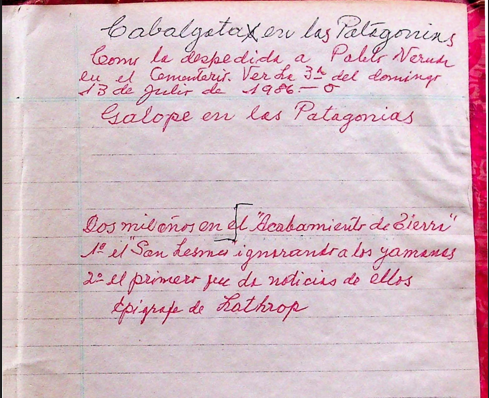 Cabalgata en las Patagonias
Como la despedida a Pablo Neruda
en el Cementerio. Ver La 3ª del domingo
13 de Julio de 1986 —
Galope en las Patagonias
Dos mil años en el "Acabamiento de Tierra"
1º el "San Lesmes ignorando a los yamanas
2º el primero que da noticias de ellos
Epígrafe de Lathrop